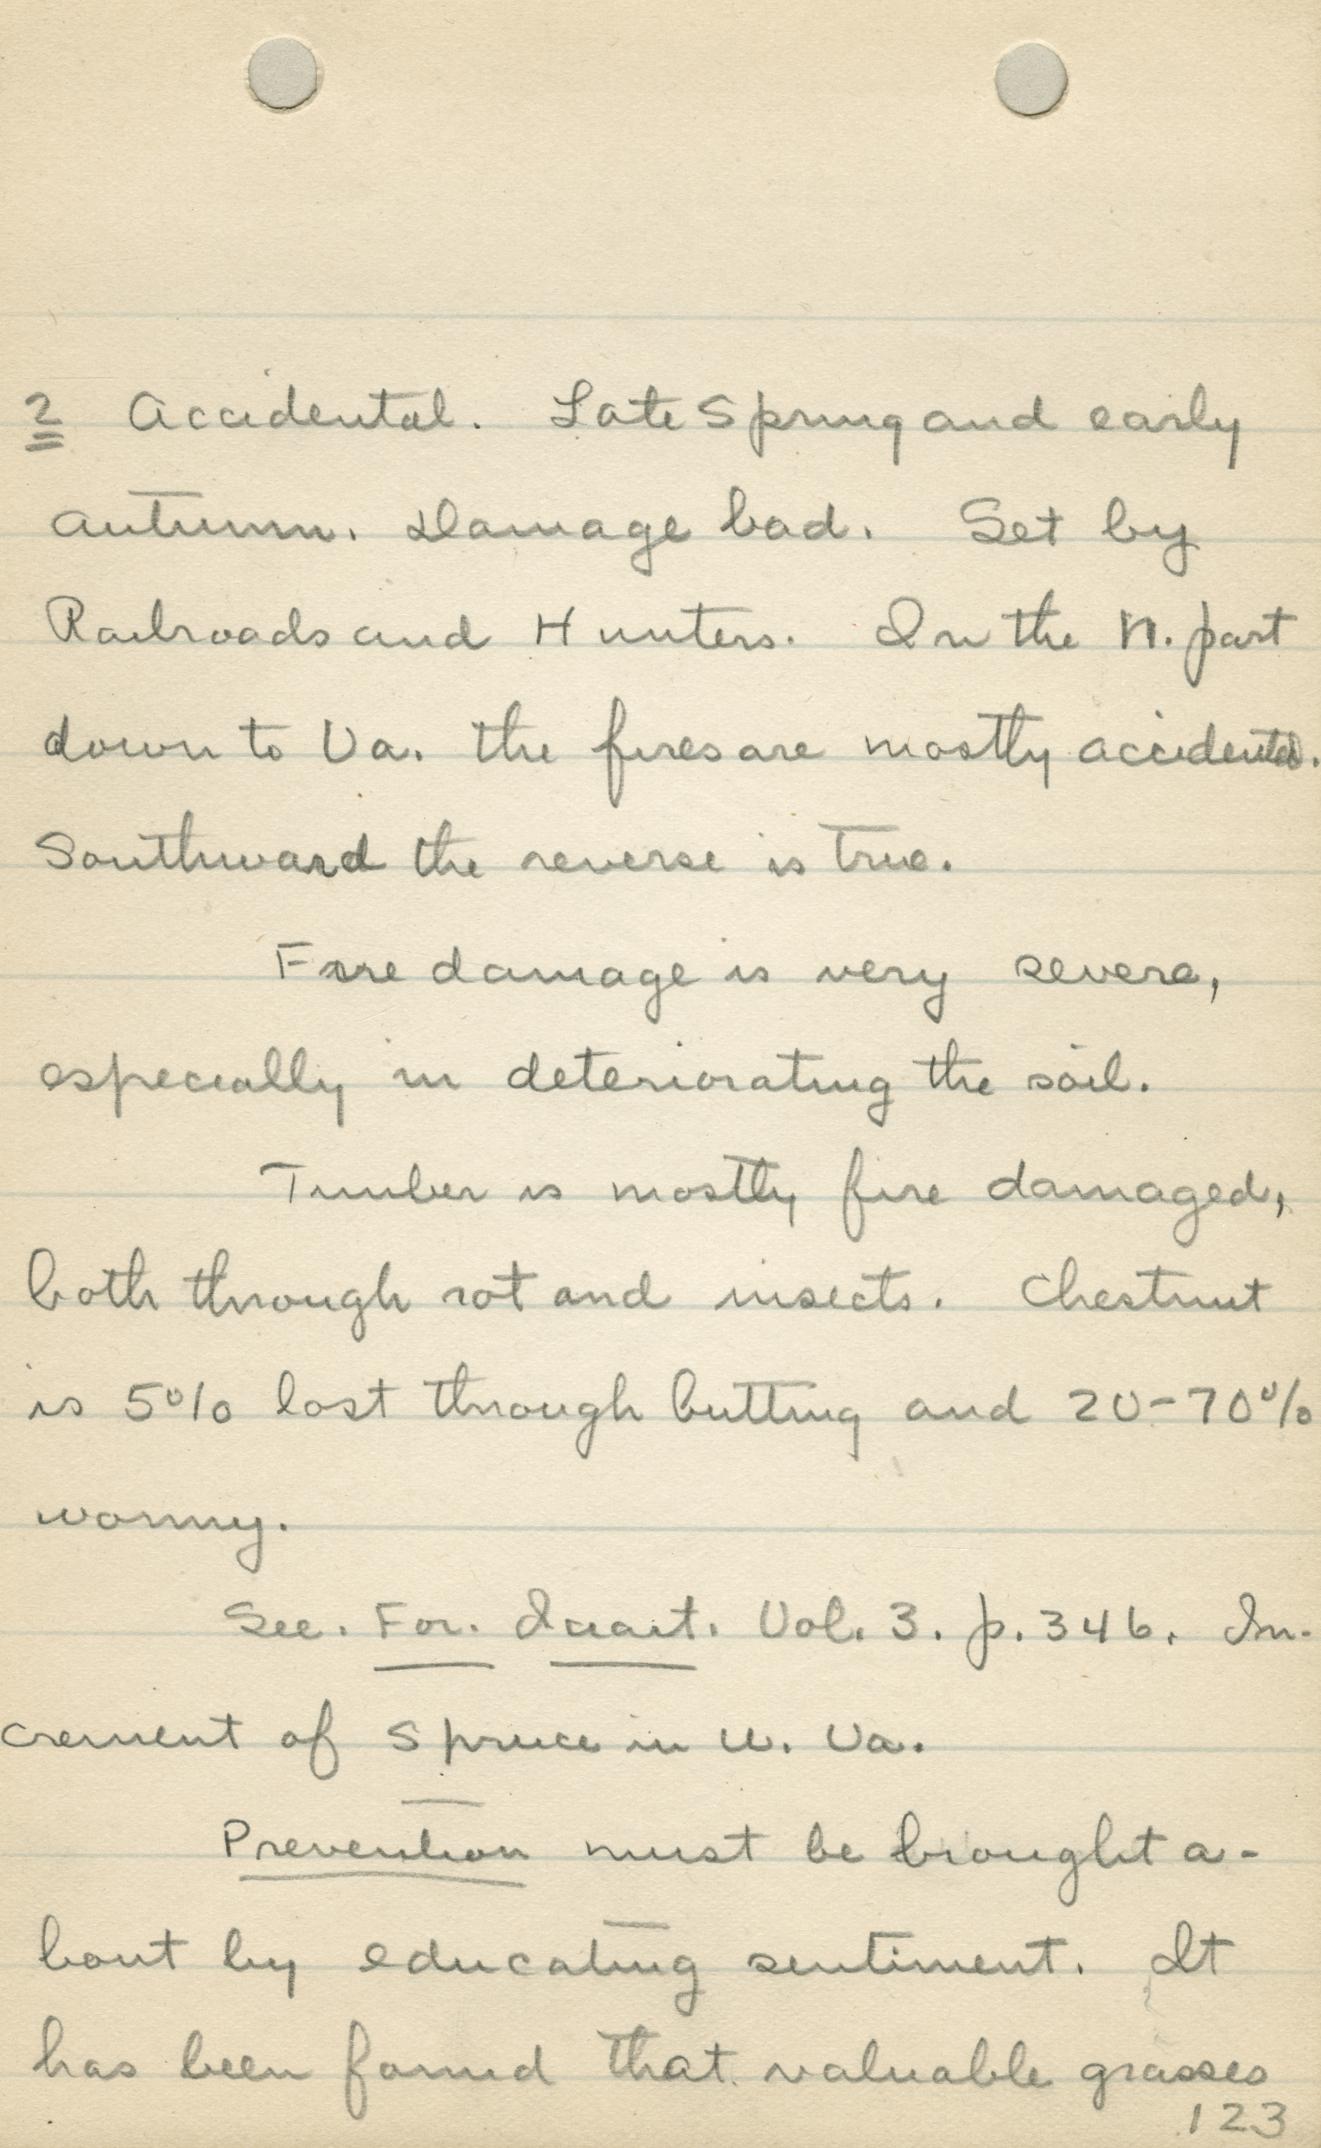 2 Accidental. Late Spring and early
autumn. Damage bad. Set by
Railroads and Hunters. In the N. part
down to Va. the fires are mostly accidental.
Southward the reverse is true.
Fire damage is very severe,
especially in deteriorating the soil.
Timber is mostly fire damaged,
both through rot and insects. Chestnut
is 5% lost through butting and 20-70%
wormy.
See. For. Quart. Vol. 3. p. 346. In-
crement of Spruce in W. Va.
Prevention must be brought a-
bout by educating sentiment. It
has been found that valuable grasses
123